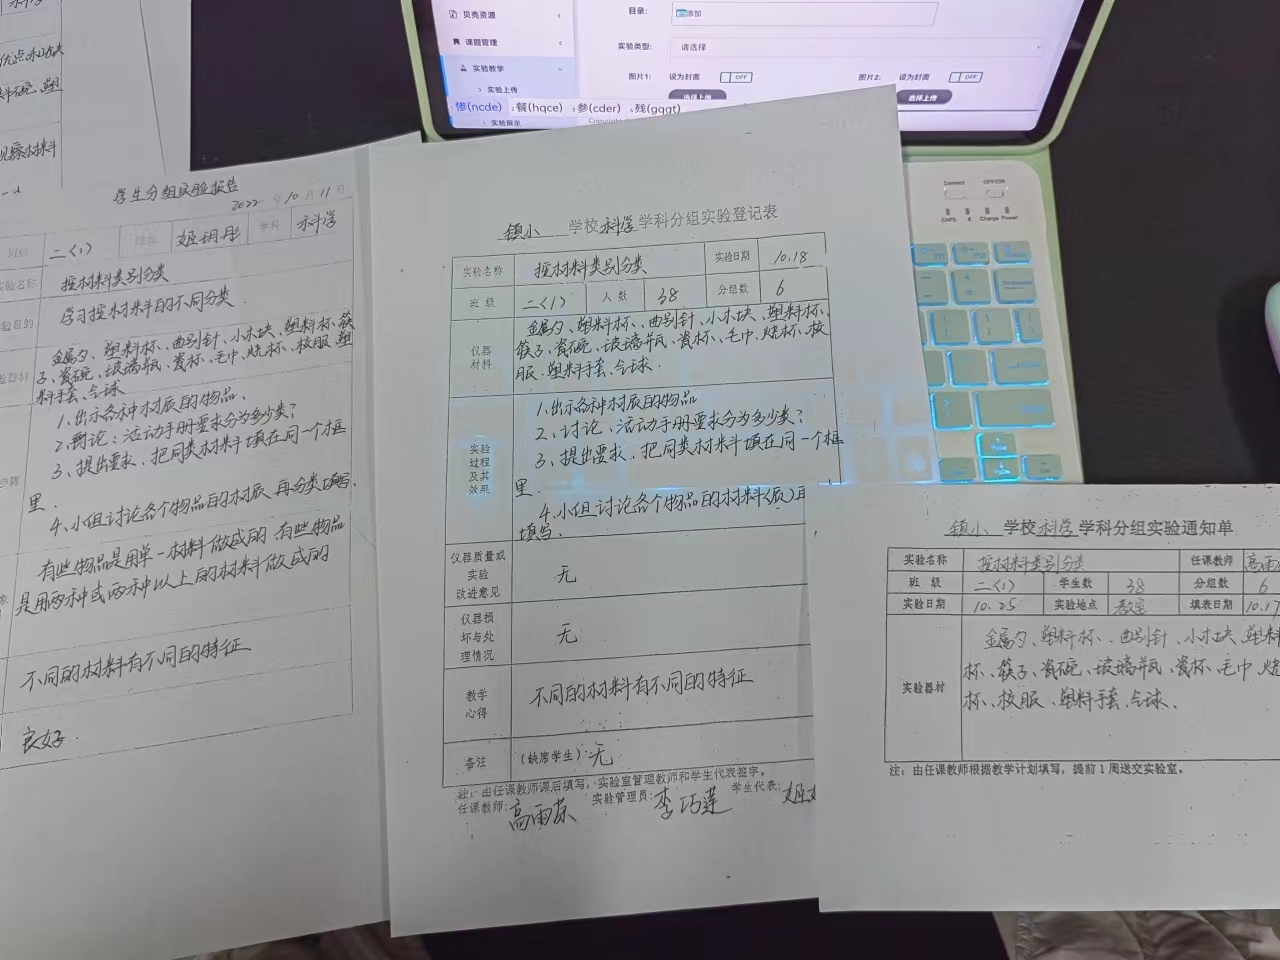 贝壳资源
课题管理
实验教学
实验上传
实验展示
目录:
添加
实验类型:
请选择
图片1: 设为封面 OFF
选择上传
图片2: 设为封面 OFF
选择上传
惨(ncde) 2餐(hqce) 3参(cder) 4残(gqgt)
Connect OFF/ON
CAPS Charge Power
优点和缺
料碗、塑
观察材料
学生分组实验报告
2022年10月11日
班级 二<1> 姬玥彤 学科 科学
实验名称 按材料类别分类
学习按材料的不同分类
金属勺、塑料杯、曲别针、小木块、塑料杯、筷
子、瓷碗、玻璃瓶、瓷杯、毛巾、烧杯、校服、塑
料手套、气球
1、出示各种材质的物品、
2、讨论：活动手册要求分为多少类？
3、提出要求、把同类材料填在同一个框
里.
4、小组讨论各个物品的材质、再分类填写、
有些物品是用单一材料做成的、有些物品
是用两种或两种以上的材料做成的
不同的材料有不同的特征
良好.
镇小 学校科学学科分组实验登记表
实验名称 按材料类别分类 实验日期 10.18
班 级 二<1> 人 数 38 分组数 6
仪器
材料
金属勺、塑料杯、曲别针、小木块、塑料杯、
筷子、瓷碗、玻璃瓶、瓷杯、毛巾、烧杯、校
服、塑料手套、气球.
实验
过程
及其
效果
1、出示各种材质的物品
2、讨论、活动手册要求分为多少类？
3、提出要求、把同类材料填在同一个框
里.
4、小组讨论各个物品的材料(质)再
填写.
仪器质量或
实验
改进意见
无
仪器损
坏与处
理情况
无
教学
心得
不同的材料有不同的特征
备注 (缺席学生)无
注：由任课教师课后填写，实验室管理教师和学生代表签字。
任课教师: 高雨荣 实验管理员: 李巧莲 学生代表: 姬
镇小 学校科学学科分组实验通知单
实验名称 按材料类别分类 任课教师 高雨
班 级 二<1> 学生数 38 分组数 6
实验日期 10.25 实验地点 教室 填表日期 10.17
实验器材
金属勺、塑料杯、曲别针、小木块、塑料
杯、筷子、瓷碗、玻璃瓶、瓷杯、毛巾、烧
杯、校服、塑料手套、气球、
注：由任课教师根据教学计划填写，提前1周送交实验室。